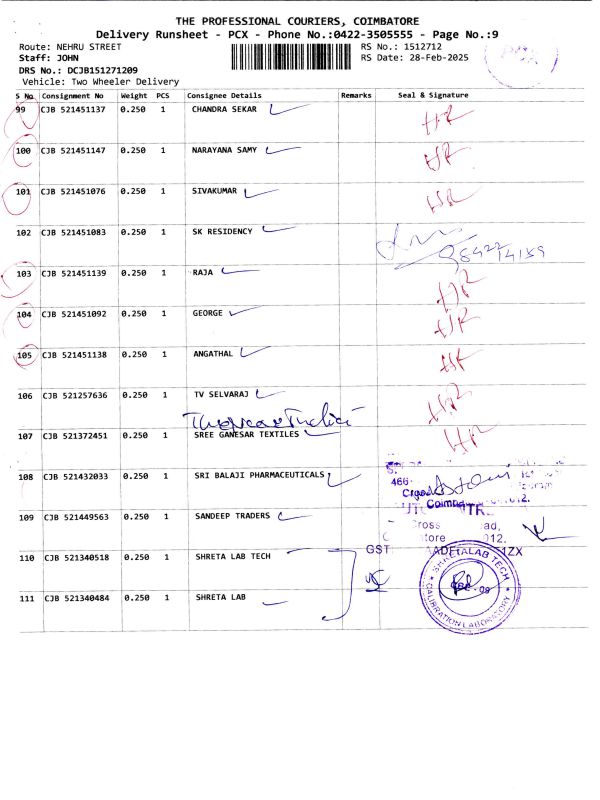 THE PROFESSIONAL COURIERS, COIMBATORE
Delivery Runsheet - PCX - Phone No.:0422-3505555 - Page No.:9
Route: NEHRU STREET RS No.: 1512712
Staff: JOHN RS Date: 28-Feb-2025
DRS No.: DCJB151271209
Vehicle: Two Wheeler Delivery
S No. Consignment No Weight PCS Consignee Details Remarks Seal & Signature
99 CJB 521451137 0.250 1 CHANDRA SEKAR HR
100 CJB 521451147 0.250 1 NARAYANA SAMY HR
101 CJB 521451076 0.250 1 SIVAKUMAR HR
102 CJB 521451083 0.250 1 SK RESIDENCY
103 CJB 521451139 0.250 1 RAJA HR
104 CJB 521451092 0.250 1 GEORGE HR
105 CJB 521451138 0.250 1 ANGATHAL HR
106 CJB 521257636 0.250 1 TV SELVARAJ HR
107 CJB 521372451 0.250 1 SREE GANESAR TEXTILES HR
108 CJB 521432033 0.250 1 SRI BALAJI PHARMACEUTICALS 466
109 CJB 521449563 0.250 1 SANDEEP TRADERS
110 CJB 521340518 0.250 1 SHRETA LAB TECH GST
111 CJB 521340484 0.250 1 SHRETA LAB
SHRETALAB TECH
CALIBRATION LABORATORY